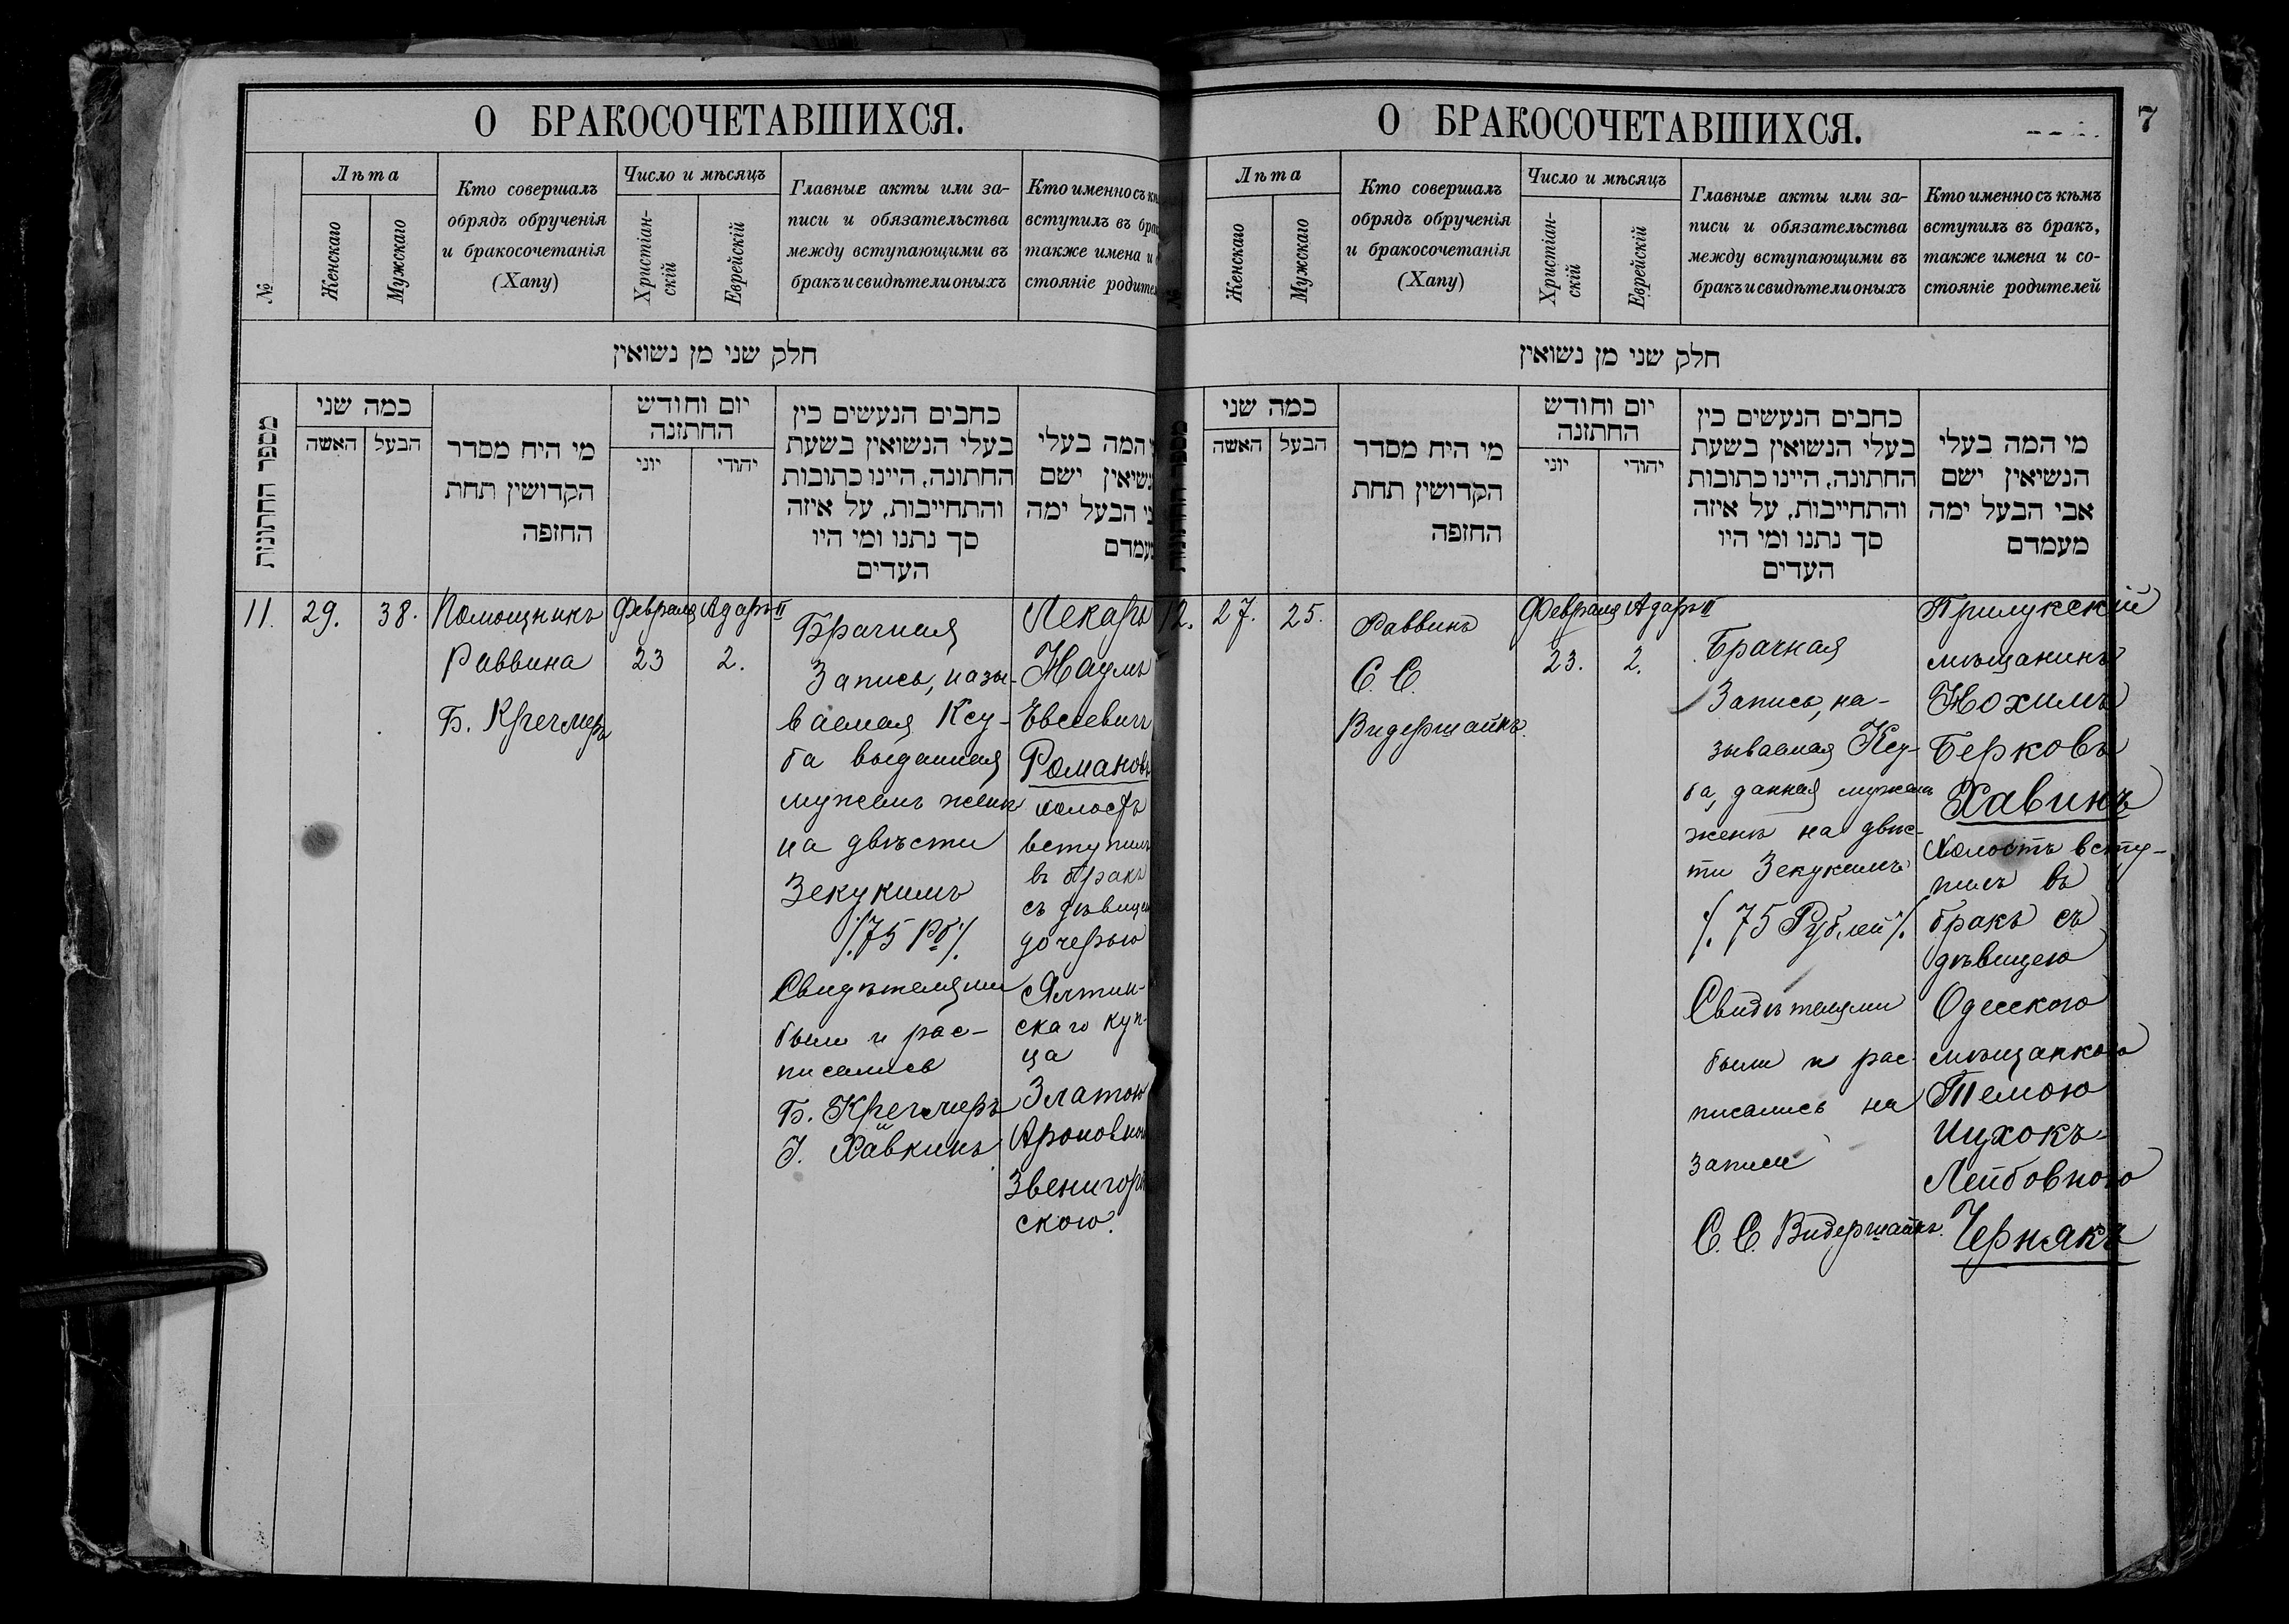 О БРАКОСОЧЕТАВШИХСЯ.
№
Лѣта
Женскаго
Мужскаго
Кто совершалъ
обрядъ обрученія
и бракосочетанія
(Хапу)
Число и мѣсяцъ
Христіан-
скій
Еврейскій
Главные акты или за-
писи и обязательства
между вступающими въ
бракъ и свидѣтели оныхъ
Кто именно съ
вступилъ въ
также имена и
стояніе
חלק שני מן נשואין
מספר החתונות
כמה שני
האשה
הבעל
מי היח מסדר
הקדושין תחת
החזפה
יום וחודש
החתזנה
יוני
יהודי
כחבים הנעשים כין
בעלי הנשואין בשעת
החתונה, היינו כתובות
והתחייבות, על איזה
סך נתנו ומי היו
העדים
המה בעלי
ישם
הבעל ימה
11.
29.
38.
Помощникъ
Раввина
Б. Кречмеръ
Февраля
23
Адаръ II
2.
Брачная
Запись, назы-
ваемая Ксу-
ба выданная
мужемъ женѣ
на двѣсти
Зекукимъ
/. 75 Рб /.
Свидѣтелями
были и рас-
писались
Б. Кречмеръ
И. Хавкинъ
Лекарь
Наумъ
Евсеевичъ
Романовъ
холостъ
вступилъ
въ бракъ
съ дѣвицею
дочерью
Ялтин-
скаго куп-
ца
Златою
Ароновною
Звенигород-
скою.
О БРАКОСОЧЕТАВШИХСЯ.
7
№
Лѣта
Женскаго
Мужскаго
Кто совершалъ
обрядъ обрученія
и бракосочетанія
(Хапу)
Число и мѣсяцъ
Христіан-
скій
Еврейскій
Главные акты или за-
писи и обязательства
между вступающими въ
бракъ и свидѣтели оныхъ
Кто именно съ кѣмъ
вступилъ въ бракъ,
также имена и со-
стояніе родителей
חלק שני מן נשואין
כמה שני
האשה
הבעל
מי היח מסדר
הקדושין תחת
החזפה
יום וחודש
החתזנה
יוני
יהודי
כחבים הנעשים כין
בעלי הנשואין בשעת
החתונה, היינו כתובות
והתחייבות, על איזה
סך נתנו ומי היו
העדים
מי המה בעלי
הנשיאין ישם
אבי הבעל ימה
מעמדם
12.
27.
25.
Раввинъ
С. С.
Видершайнъ.
Февраля
23.
Адаръ II
2.
Брачная
Запись, на-
зываемая Ксу-
ба, данная мужемъ
женѣ на двѣс-
ти Зекукимъ
/. 75 Рублей /.
Свидѣтелями
были и рас-
писались на
записи
С. С. Видершайнъ.
Прилукскій
мѣщанинъ
Нохимъ
Берковъ
Хавинъ
Холостъ всту-
пилъ въ
бракъ съ
дѣвицею
Одесскою
мѣщанкою
Темою
Ицхокъ-
Лейбовною
Чернякъ